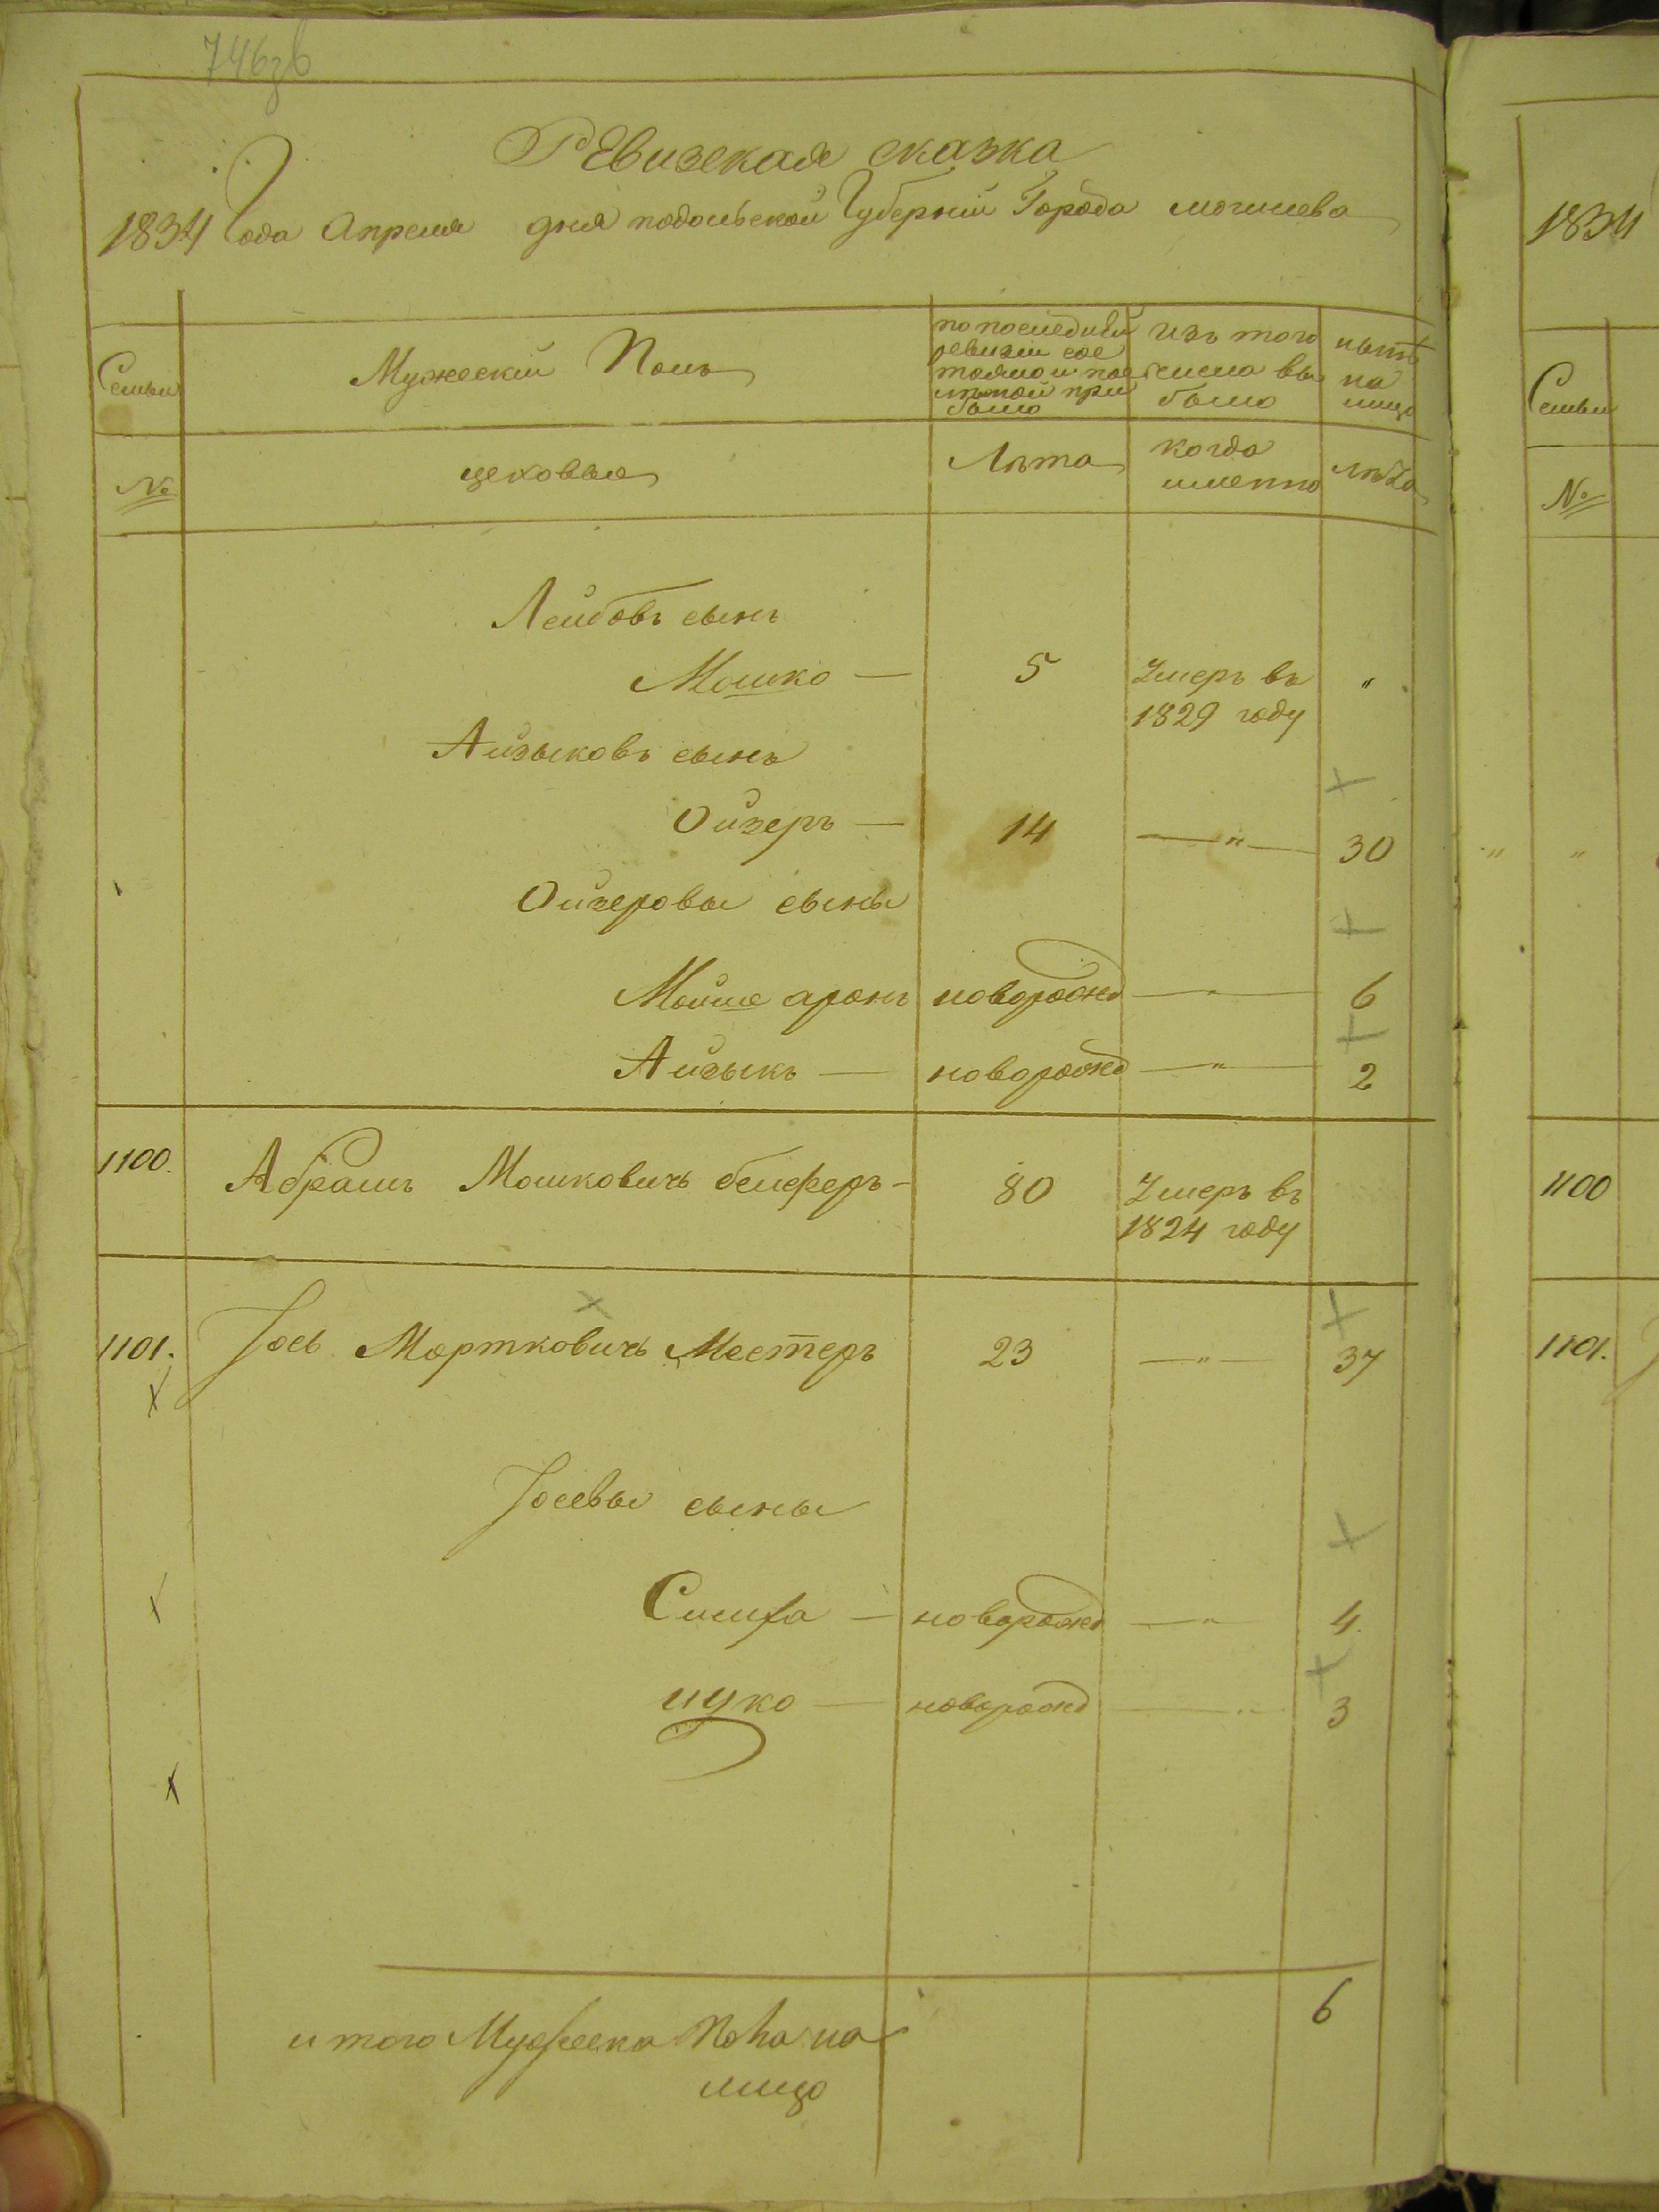 746зв
Ревизская сказка
1834 Года Апреля дня подольской Губернии Города могилева
Семьи
Мужеский Полъ
по последней ревизии сос тояло и пос ле оной при было
изъ того числа вы было
ныне на лицо
№
цеховые
Лѣта
когда именно
лѣта
Лейбовъ сынъ
Мошко — 5 Умеръ въ 1829 году "
Айзыковъ сынъ
Ойзеръ — 14 — " — 30
Ойзеровы сыны
Мойше аронъ новорожд — " — 6
Айзыкъ — новорожд — " — 2
1100. Абрамъ Мошковичъ белферъ - 80 Умеръ въ 1824 году
1101. Іось Мортковичъ Местеръ 23 — " — 37
Іосевы сыны
Симха — новорожд — " 4.
ицко — новорожд — " 3
и того Мужеска Пола на лицо 6
1834
Семьи
№
" "
1100
1101.